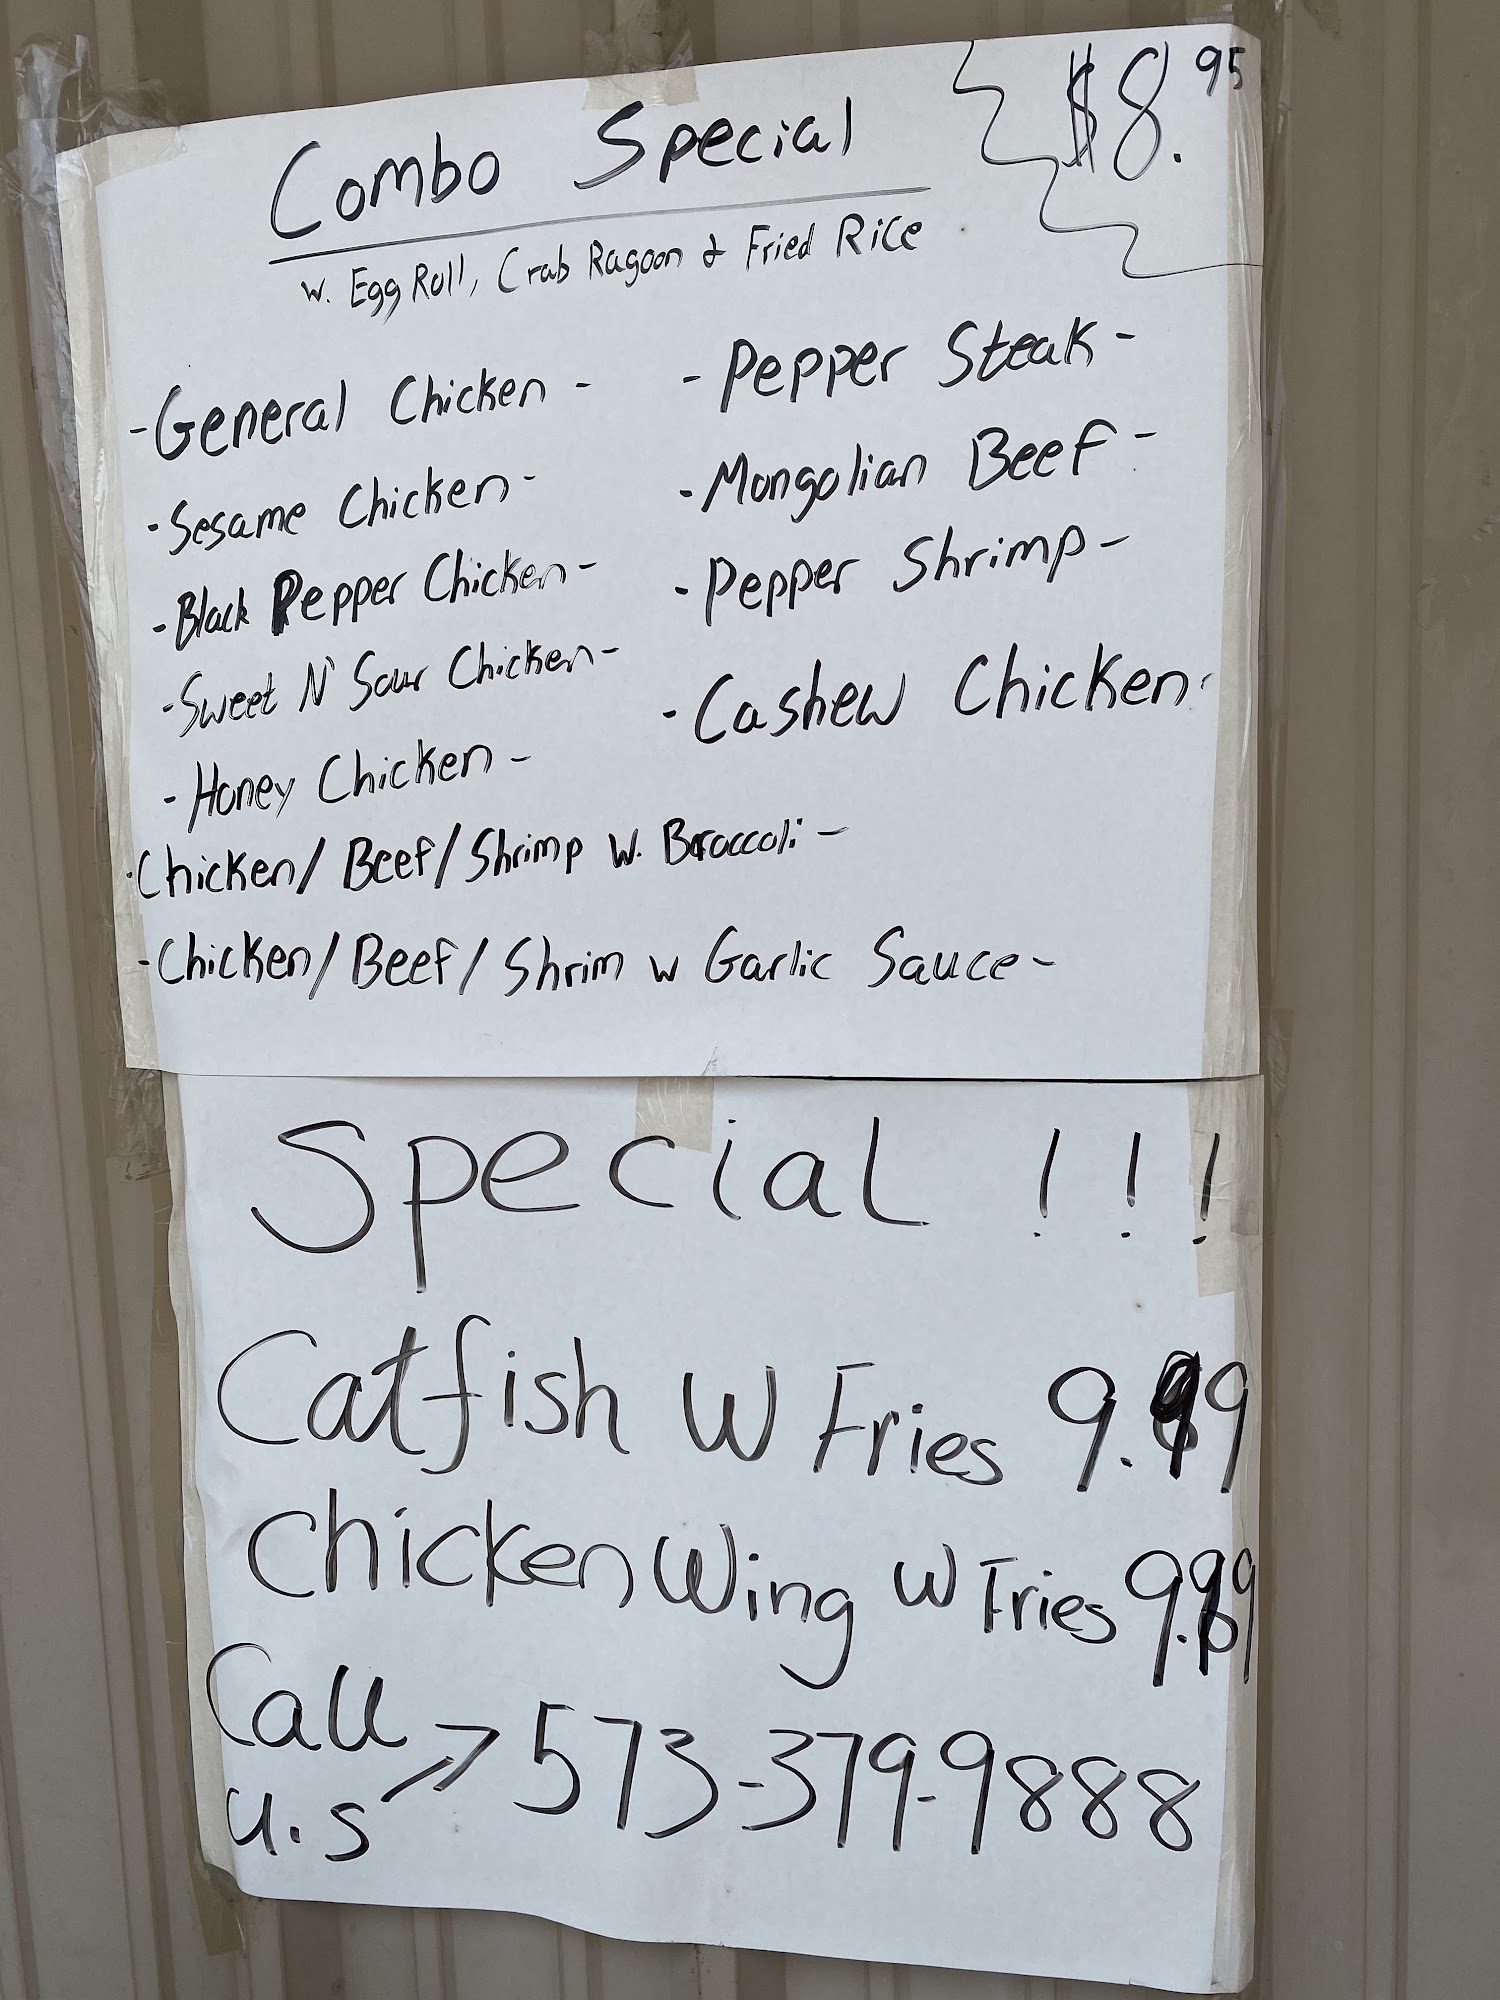 Combo Special
$8.95
w. Egg Roll, Crab Ragoon & Fried Rice
-General Chicken-
-Sesame Chicken-
-Black Pepper Chicken-
-Sweet N' Sour Chicken-
-Honey Chicken-
-Pepper Steak-
-Mongolian Beef-
-Pepper Shrimp-
-Cashew Chicken-
-Chicken/Beef/Shrimp w. Broccoli-
-Chicken/Beef/Shrim w Garlic Sauce-
Special!!!
Catfish W Fries 9.99
Chicken Wing W Fries 9.99
Call
u.s
573-379-9888